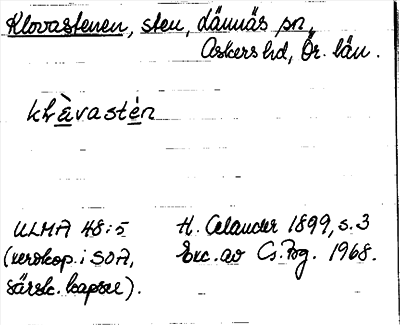 Klovastenen, sten, Lännäs sn,
Askers hd, Ör. län.
klɤ̀vastén
ULMA 48:5
(xerokop. i SOA,
särsk. kapsel).
H. Celander 1899, s. 3
Exc. av Cs. Bg. 1968.